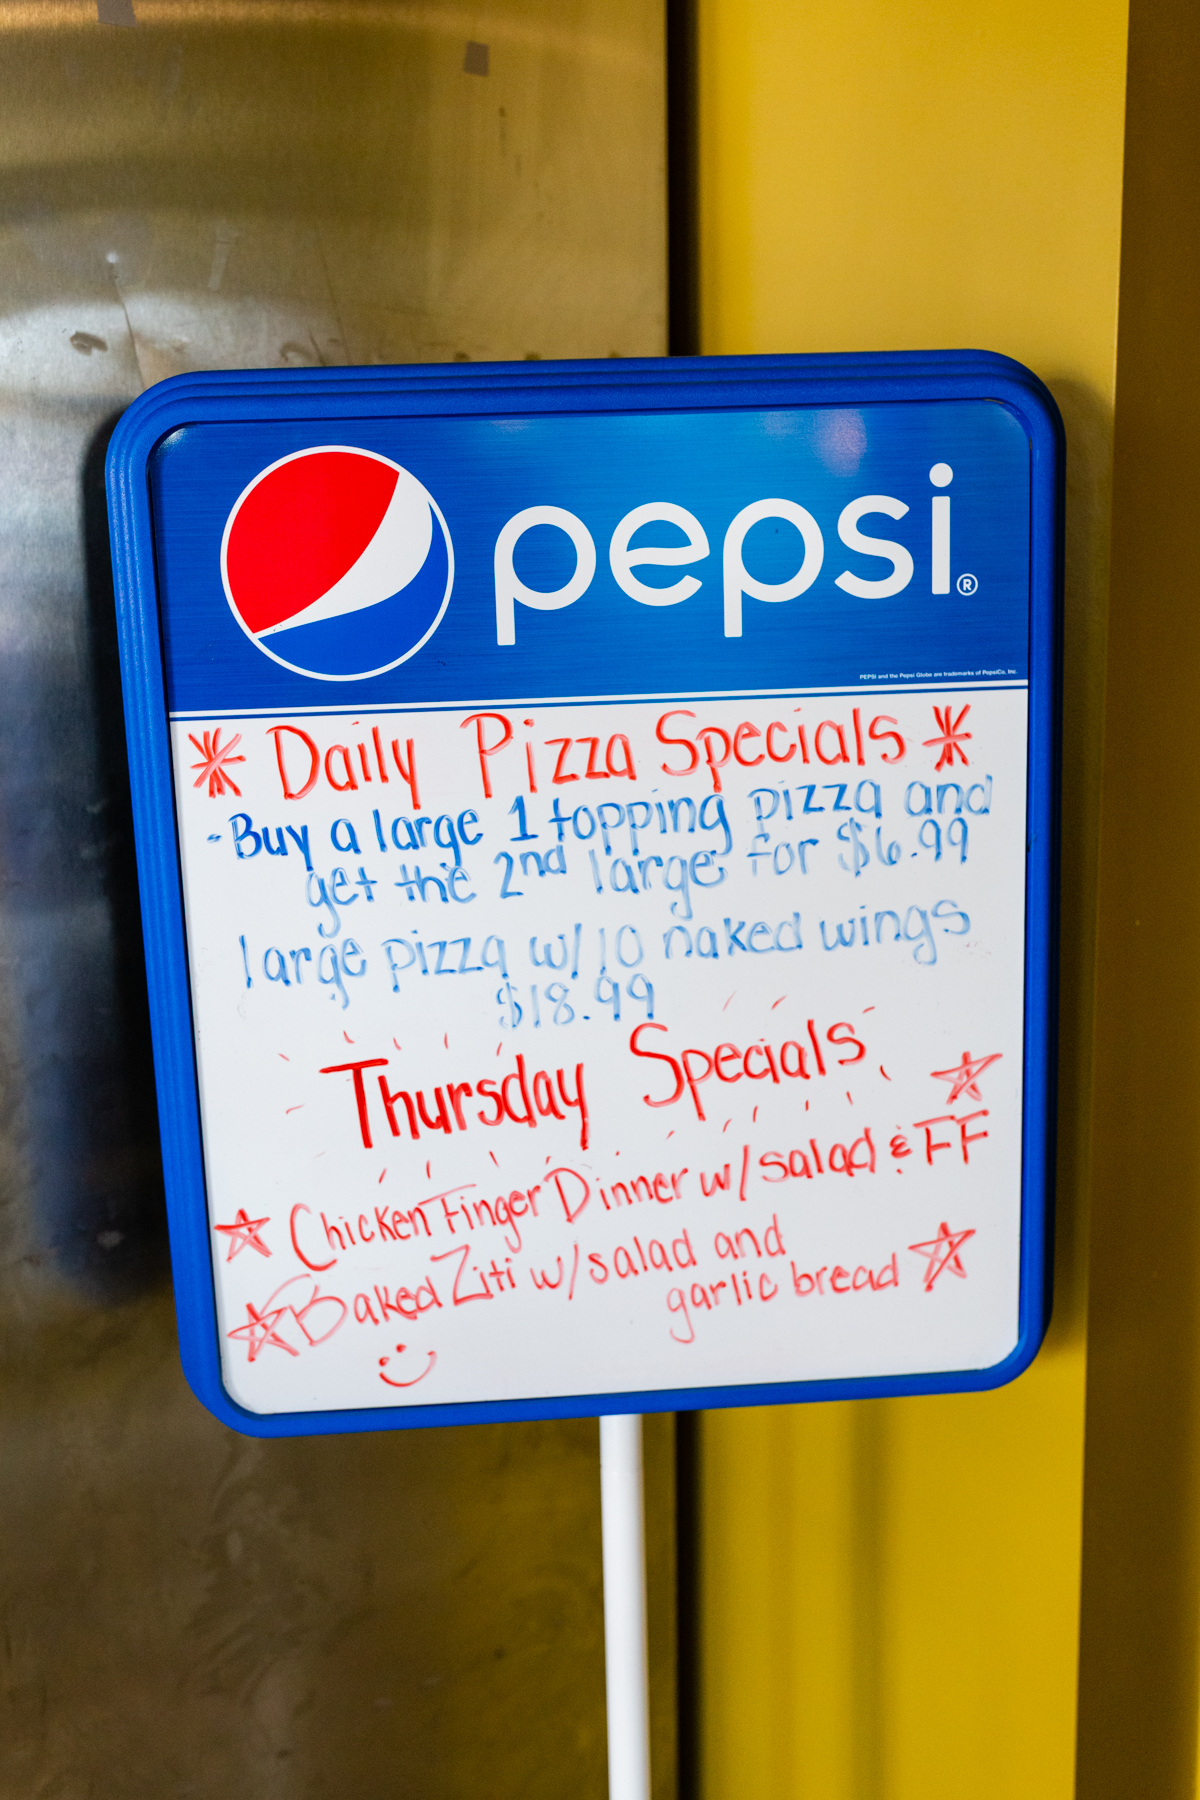 pepsi®
PEPSI and the Pepsi Globe are trademarks of PepsiCo, Inc.
Daily Pizza Specials
-Buy a large 1 topping pizza and
get the 2nd large for $6.99
large pizza w/ 10 naked wings
$18.99
Thursday Specials
Chicken Finger Dinner w/ salad & FF
Baked Ziti w/ salad and
garlic bread